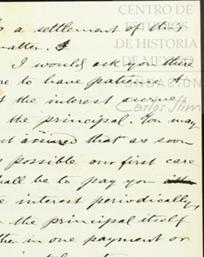 to a settlement of this
matter. I
I would ask you there
re to have patience &
t the interest accrue
the principal. You may
st assured that as soon
s possible our first care
hall be to pay you
e interest periodically,
the principal itself
ther in one payment or
CENTRO DE
ESTUDIOS
DE HISTORIA
DE MÉXICO
FUNDACIÓN
Carlos Slim